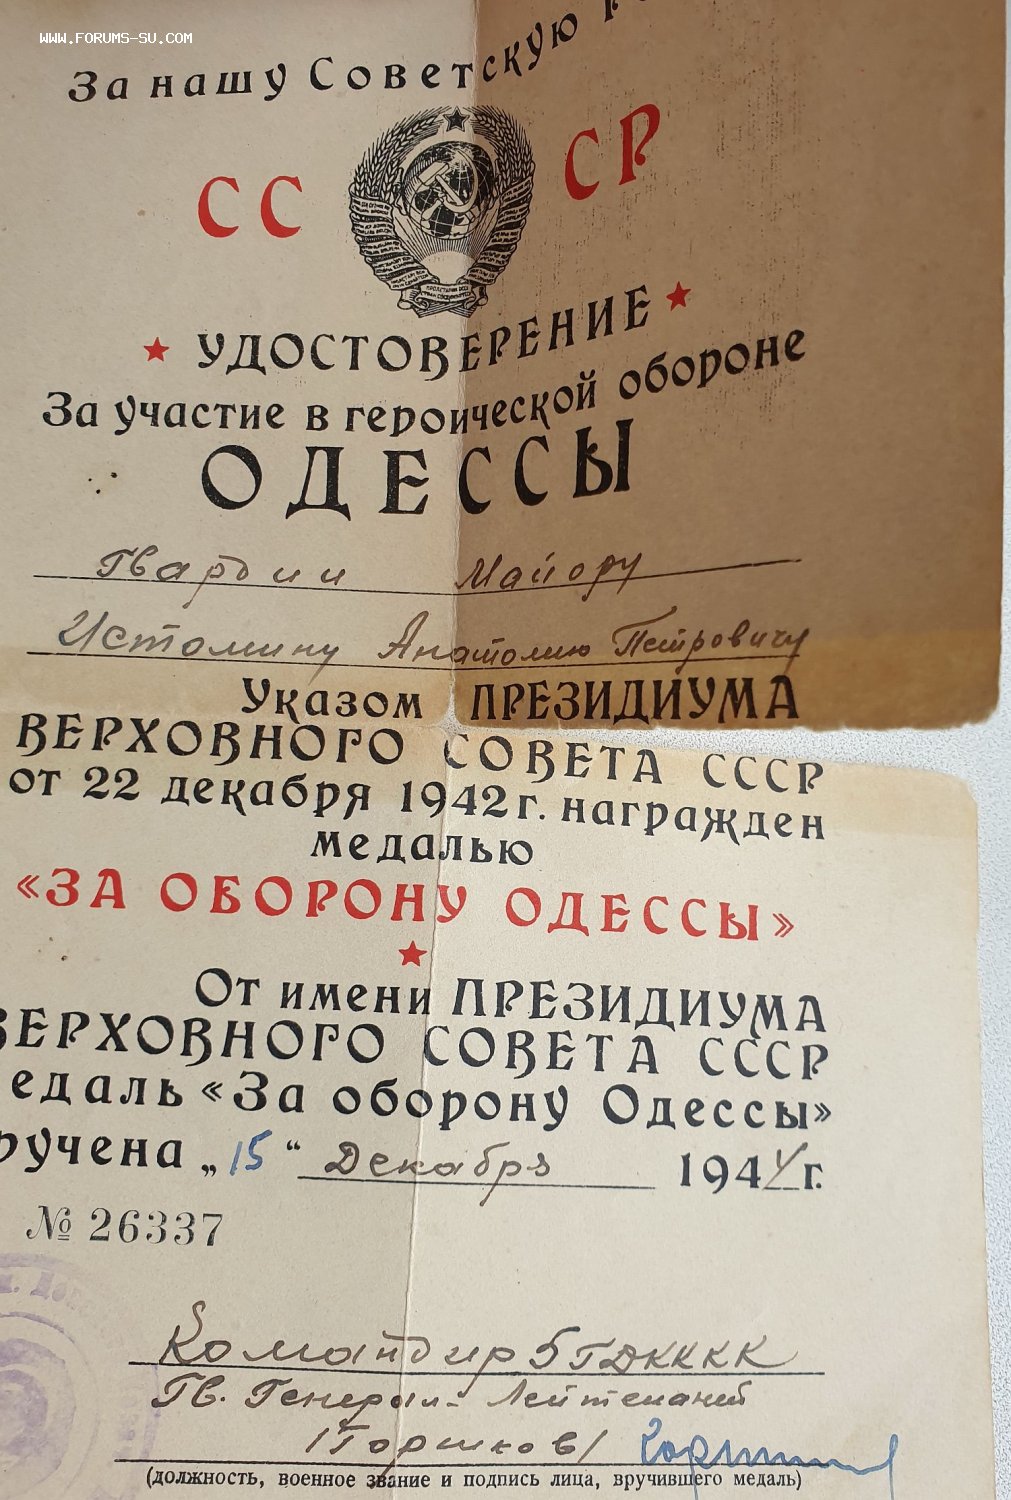 WWW.FORUMS-SU.COM
За нашу Советскую
СС СР
УДОСТОВЕРЕНИЕ
За участие в героической обороне
ОДЕССЫ
Гвардии Майору
Истомину Анатолию Петровичу
Указом ПРЕЗИДИУМА
ВЕРХОВНОГО СОВЕТА СССР
от 22 декабря 1942 г. награжден
медалью
«ЗА ОБОРОНУ ОДЕССЫ»
От имени ПРЕЗИДИУМА
ВЕРХОВНОГО СОВЕТА СССР
едаль «За оборону Одессы»
ручена „15“ Декабря 1944 г.
№ 26337
Командир 5ГДКККК
Гв. Генерал-Лейтенант
/Горшков/
(должность, военное звание и подпись лица, вручившего медаль)